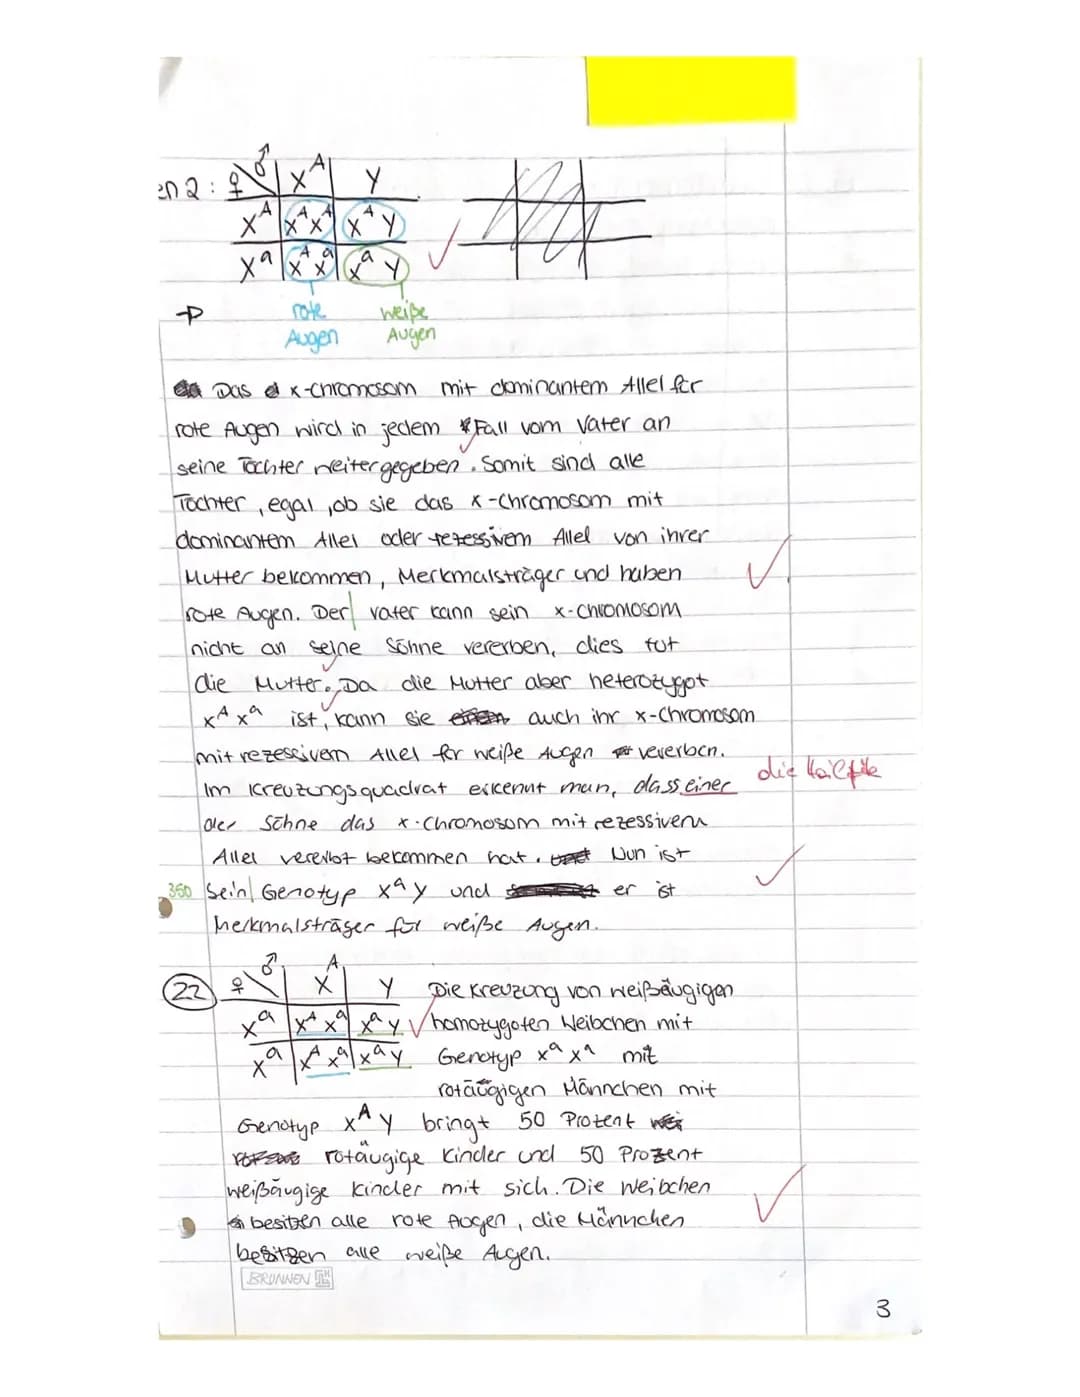 en 2: ♀ ♂ X^A Y
X^A X^A X^A X^A Y
X^a X^A X^a X^a Y
rote weiße
Augen Augen
Das x-chromosom mit dominantem Allel für
rote Augen wird in jedem Fall vom Vater an
seine Töchter weitergegeben. Somit sind alle
Töchter, egal, ob sie das x-Chromosom mit
dominantem Allel oder rezessivem Allel von ihrer
Mutter bekommen, Merkmalsträger und haben
rote Augen. Der vater kann sein x-Chromosom
nicht an seine Söhne vererben, dies tut
die Mutter. Da die Mutter aber heterozygot
x^A x^a ist, kann sie auch ihr x-Chromosom
mit rezessivem Allel für weiße Augen vererben.
Im Kreuzungsquadrat erkennt man, dass einer die Hälfte
der Söhne das x-Chromosom mit rezessivem
Allel vererbt bekommen hat. Nun ist
350 Sein Genotyp x^a y und er ist
Merkmalsträger für weiße Augen.
22 ♀ ♂ X^A Y Die Kreuzung von weißäugigen
x^a x^A x^a x^a y homozygoten Weibchen mit
x^a x^A x^a x^a y Genotyp x^a x^a mit
rotäugigen Männchen mit
Genotyp x^A y bringt 50 Prozent
rotäugige Kinder und 50 Prozent
weißäugige Kinder mit sich. Die Weibchen
besitzen alle rote Augen, die Männchen
besitzen alle weiße Augen.
BRUNNEN
3